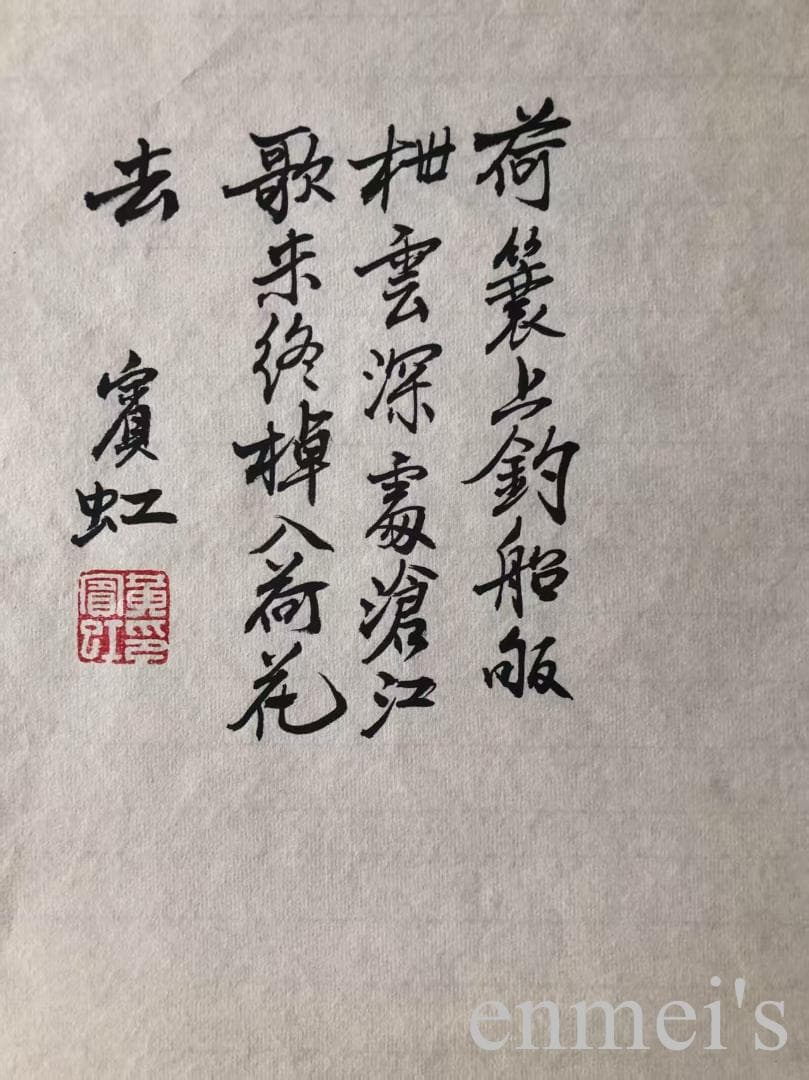 荷簑上釣船皈
枻雲深處滄江
歌未終棹入荷花
去
賓虹
黃賓虹印
enmei's